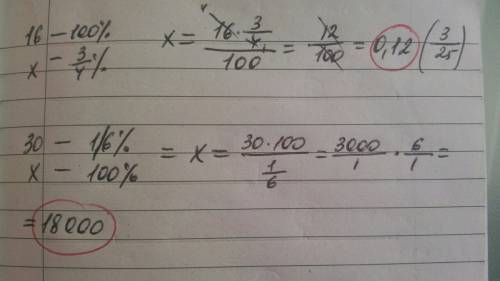 16 – 100%
x – 3/4 %
x = (16 · 3/4)/100 = 12/100 = 0,12 (3/25)
30 – 1/6%
x – 100%
= x = (30 · 100)/(1/6) = 3000/1 · 6/1 =
= 18000